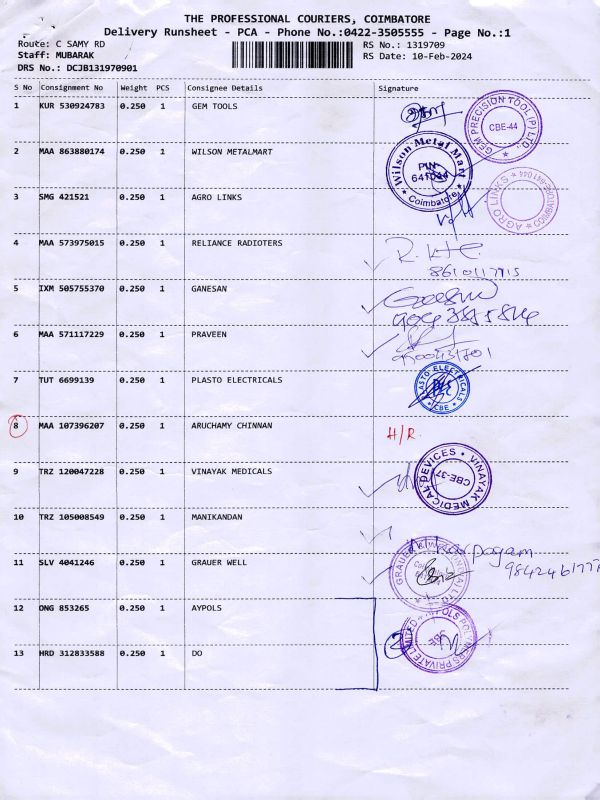 THE PROFESSIONAL COURIERS, COIMBATORE
Delivery Runsheet - PCA - Phone No.:0422-3505555 - Page No.:1
Route: C SAMY RD
RS No.: 1319709
Staff: MUBARAK
RS Date: 10-Feb-2024
DRS No.: DCJB131970901
S No Consignment No Weight PCS Consignee Details Signature
1 KUR 530924783 0.250 1 GEM TOOLS
GEM PRECISION TOOL (P) LTD. CBE-44
2 MAA 863880174 0.250 1 WILSON METALMART
Wilson Metal Mart PIN 641044 Coimbatore
3 SMG 421521 0.250 1 AGRO LINKS
AGRO LINKS COIMBATORE-641 044
4 MAA 573975015 0.250 1 RELIANCE RADIOTERS
5 IXM 505755370 0.250 1 GANESAN
6 MAA 571117229 0.250 1 PRAVEEN
7 TUT 6699139 0.250 1 PLASTO ELECTRICALS
PLASTO ELECTRICALS CBE
8 MAA 107396207 0.250 1 ARUCHAMY CHINNAN H/R.
9 TRZ 120047228 0.250 1 VINAYAK MEDICALS
VINAYAK MEDICAL DEVICES CBE-37
10 TRZ 105008549 0.250 1 MANIKANDAN
11 SLV 4041246 0.250 1 GRAUER WELL
12 ONG 853265 0.250 1 AYPOLS
2
13 HRD 312833588 0.250 1 DO